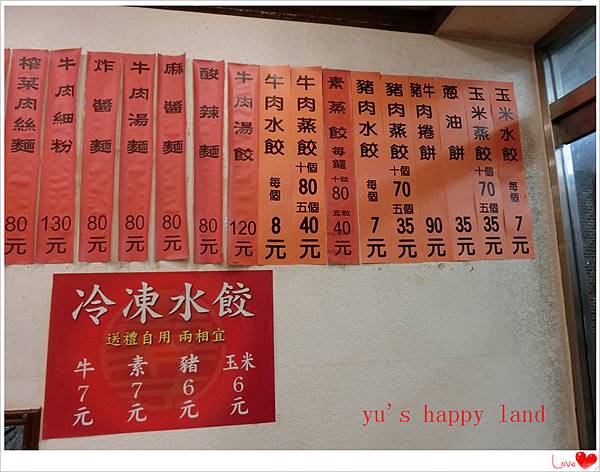 玉米水餃 每個 7 元
玉米蒸餃 十個 70 五個 35 元
蔥油餅 35 元
豬牛肉捲餅 90 元
豬肉蒸餃 十個 70 五個 35 元
豬肉水餃 每個 7 元
素蒸餃 每籠 十粒 80 五粒 40 元
牛肉蒸餃 十個 80 五個 40 元
牛肉水餃 每個 8 元
牛肉湯餃 120 元
酸辣麵 80 元
麻醬麵 80 元
牛肉湯麵 80 元
炸醬麵 80 元
牛肉細粉 130 元
榨菜肉絲麵 80 元
冷凍水餃
送禮自用 兩相宜
牛 7 元
素 7 元
豬 6 元
玉米 6 元
yu's happy land
Love